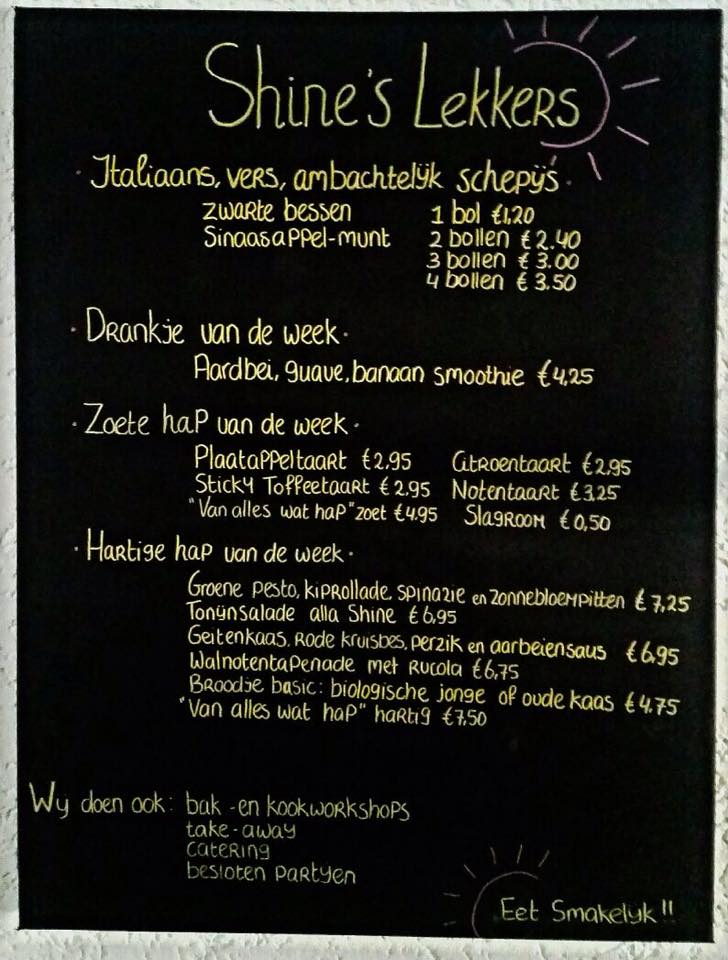 Shine's Lekkers
· Italiaans, vers, ambachtelijk schepijs ·
zwarte bessen 1 bol €1,20
Sinaasappel-munt 2 bollen €2.40
3 bollen €3.00
4 bollen €3.50
· Drankje van de week ·
Aardbei, guave, banaan smoothie €4,25
· Zoete hap van de week ·
Plaatappeltaart €2,95 Citroentaart €2,95
Sticky Toffeetaart €2,95 Notentaart €3,25
"Van alles wat hap" zoet €4.95 Slagroom €0,50
· Hartige hap van de week ·
Groene pesto, kiprollade, spinazie en zonnebloempitten €7,25
Tonijnsalade alla Shine €6,95
Geitenkaas, rode kruisbes, perzik en aarbeiensaus €6,95
Walnotentapenade met rucola €6,75
Broodje basic: biologische jonge of oude kaas €4.75
"Van alles wat hap" hartig €7,50
Wij doen ook: bak-en kookworkshops
take-away
catering
besloten partyen
Eet Smakelijk!!